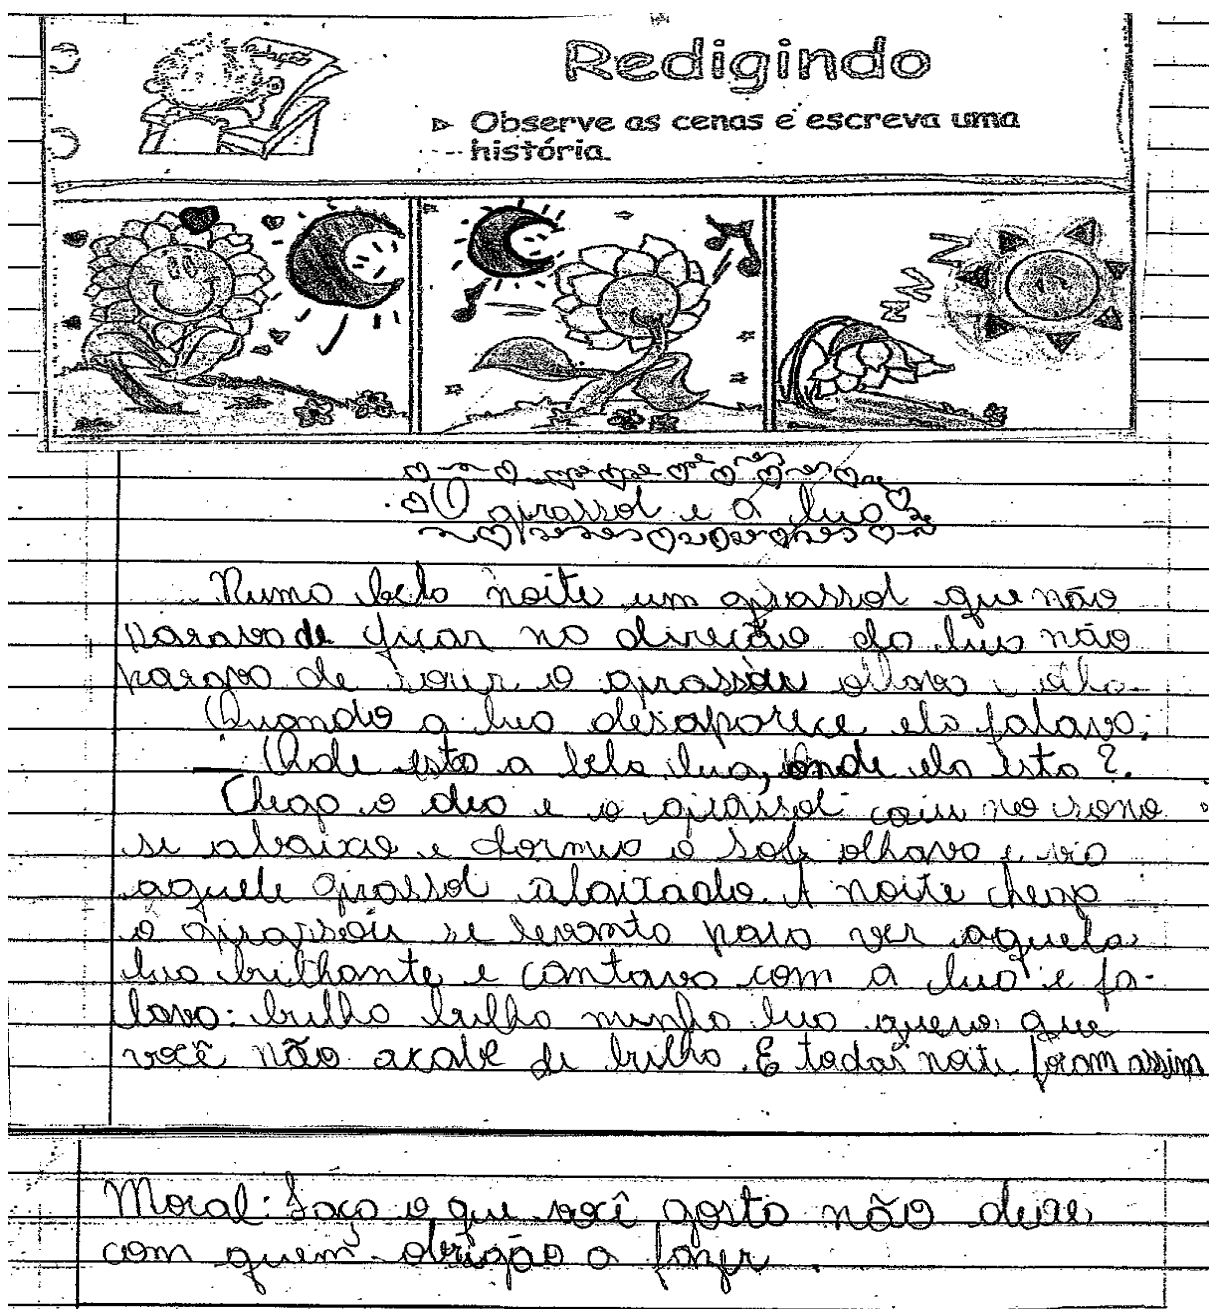 Redigindo
Observe as cenas e escreva uma
história.
O girassol e a lua
Numa bela noite um girassol que não
parava de ficar na direção da lua não
parava de o girassou olhava e olha
Quando a lua desaparece ela falava:
— Onde esta a bela lua, onde ela esta?
Chega o dia e o girassol caiu no sono
se abaixo e dormiu o Sol olhava e via
aquele girassol abaixado. A noite chega
o girassou se levanto para ver aquela
lua brilhante e cantava com a lua e fa-
lava: brilha brilha minha lua quero que
você não acabe de brilha. E todas noite foram assim
Moral: Faça o que você gosta não deixe
com quem obrigão a fazer.